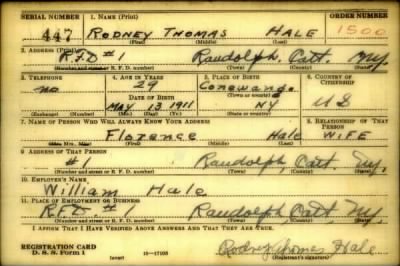 SERIAL NUMBER 1. NAME (Print) ORDER NUMBER
447 RODNEY THOMAS HALE 1500
(First) (Middle) (Last)
2. ADDRESS (Print)
R.F.D #1 Randolph, Catt. NY.
(Number and street or R. F. D. number) (Town) (County) (State)
3. TELEPHONE 4. AGE IN YEARS 5. PLACE OF BIRTH 6. COUNTRY OF CITIZENSHIP
no 29 Conewango
DATE OF BIRTH (Town or county)
MAY 13 1911 NY U S
(Exchange) (Number) (Mo.) (Day) (Yr.) (State or country)
7. NAME OF PERSON WHO WILL ALWAYS KNOW YOUR ADDRESS 8. RELATIONSHIP OF THAT PERSON
Florence Hale WIFE
(Mr., Mrs., Miss) (First) (Middle) (Last)
9. ADDRESS OF THAT PERSON
#1 Randolph Catt. Ny.
(Number and street or R. F. D. number) (Town) (County) (State)
10. EMPLOYER'S NAME
William Hale
11. PLACE OF EMPLOYMENT OR BUSINESS
R.F.D. #1 Randolph, Catt, Ny.
(Number and street or R. F. D. number) (Town) (County) (State)
I AFFIRM THAT I HAVE VERIFIED ABOVE ANSWERS AND THAT THEY ARE TRUE.
REGISTRATION CARD Rodney Thomas Hale
D. S. S. Form 1 (over) 16—17105 (Registrant's signature)